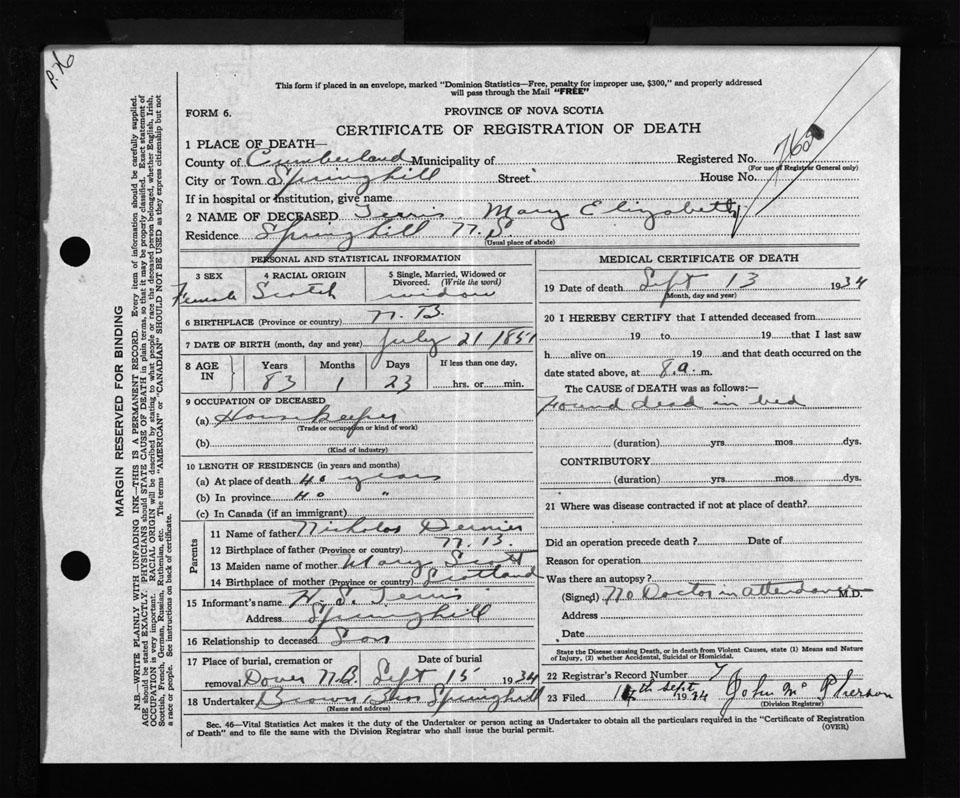 P.X
This form if placed in an envelope, marked "Dominion Statistics—Free, penalty for improper use, $300," and properly addressed
will pass through the Mail "FREE"
FORM 6.
PROVINCE OF NOVA SCOTIA
CERTIFICATE OF REGISTRATION OF DEATH
1 PLACE OF DEATH—
County of Cumberland Municipality of Registered No. 768
(For use of Registrar General only)
City or Town Springhill Street House No.
If in hospital or institution, give name
2 NAME OF DECEASED Terris Mary Elizabeth
Residence Springhill N.S.
(Usual place of abode)
PERSONAL AND STATISTICAL INFORMATION
3 SEX 4 RACIAL ORIGIN 5 Single, Married, Widowed or Divorced. (Write the word)
Female Scotch widow
6 BIRTHPLACE (Province or country) N.B.
7 DATE OF BIRTH (month, day and year) July 21 1851
8 AGE IN Years Months Days If less than one day,
83 1 23 hrs. or min.
9 OCCUPATION OF DECEASED
(a) Housekeeper
(Trade or occupation or kind of work)
(b)
(Kind of industry)
10 LENGTH OF RESIDENCE (in years and months)
(a) At place of death 40 years
(b) In province 40 "
(c) In Canada (if an immigrant)
Parents
11 Name of father Nicholas Dernier
12 Birthplace of father (Province or country) N.B.
13 Maiden name of mother Mary Scott
14 Birthplace of mother (Province or country) Scotland
15 Informant's name H. S. Terris
Address Springhill
16 Relationship to deceased Son
17 Place of burial, cremation or Date of burial
removal Dover N.B. Sept 15 1934
18 Undertaker Brown Bros Springhill
(Name and address)
MEDICAL CERTIFICATE OF DEATH
19 Date of death Sept 13 1934
(Month, day and year)
20 I HEREBY CERTIFY that I attended deceased from
19 to 19 that I last saw
h alive on 19 and that death occurred on the
date stated above, at 8.a. m.
The CAUSE of DEATH was as follows:—
Found dead in bed
(duration) yrs. mos. dys.
CONTRIBUTORY
(duration) yrs. mos. dys.
21 Where was disease contracted if not at place of death?
Did an operation precede death? Date of
Reason for operation
Was there an autopsy?
(Signed) No Doctor in M.D.
Address
Date
State the Disease causing Death, or in death from Violent Causes, state (1) Means and Nature
of Injury, (2) whether Accidental, Suicidal or Homicidal.
22 Registrar's Record Number
23 Filed Sept. 1934 John McPherson
(Division Registrar)
Sec. 46—Vital Statistics Act makes it the duty of the Undertaker or person acting as Undertaker to obtain all the particulars required in the "Certificate of Registration
of Death" and to file the same with the Division Registrar who shall issue the burial permit.
(OVER)
MARGIN RESERVED FOR BINDING
N.B.—WRITE PLAINLY WITH UNFADING INK—THIS IS A PERMANENT RECORD. Every item of information should be carefully supplied.
AGE should be stated EXACTLY. PHYSICIANS should STATE CAUSE OF DEATH in plain terms, so that it may be properly classified. Exact statement of
OCCUPATION is very important. RACIAL ORIGIN will be described by stating to what people or race the deceased person belonged, whether English, Irish,
Scottish, French, German, Russian, Ruthenian, etc. The terms "AMERICAN" or "CANADIAN" SHOULD NOT BE USED as they express citizenship but not
a race or people. See instructions on back of certificate.